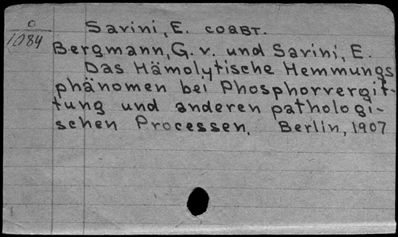 o
1084
Savini, E. соавт.
Bergmann, G. v. und Savini, E.
Das Hämolytische Hemmungs
phänomen bei Phosphorvergit-
tung und anderen pathologi-
schen Processen, Berlin, 1907